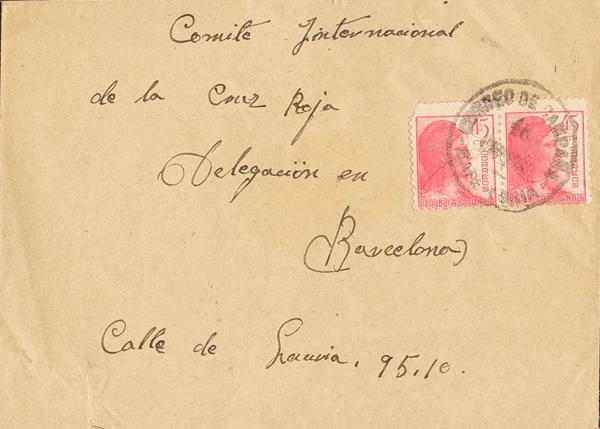 Comité Internacional
de la Cruz Roja
Delegación en
Barcelona
Calle de Lauria, 95, 1º.
15
CORREOS
REPUBLICA ESPAÑOLA
15
CORREOS
ESPAÑOLA
CORREO DE CAMPAÑA